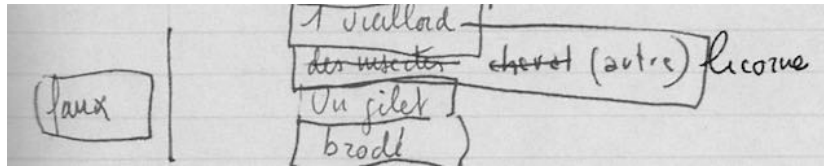 1 vieillard
des insectes cheval (autre) licorne
faux
Un gilet
brodé